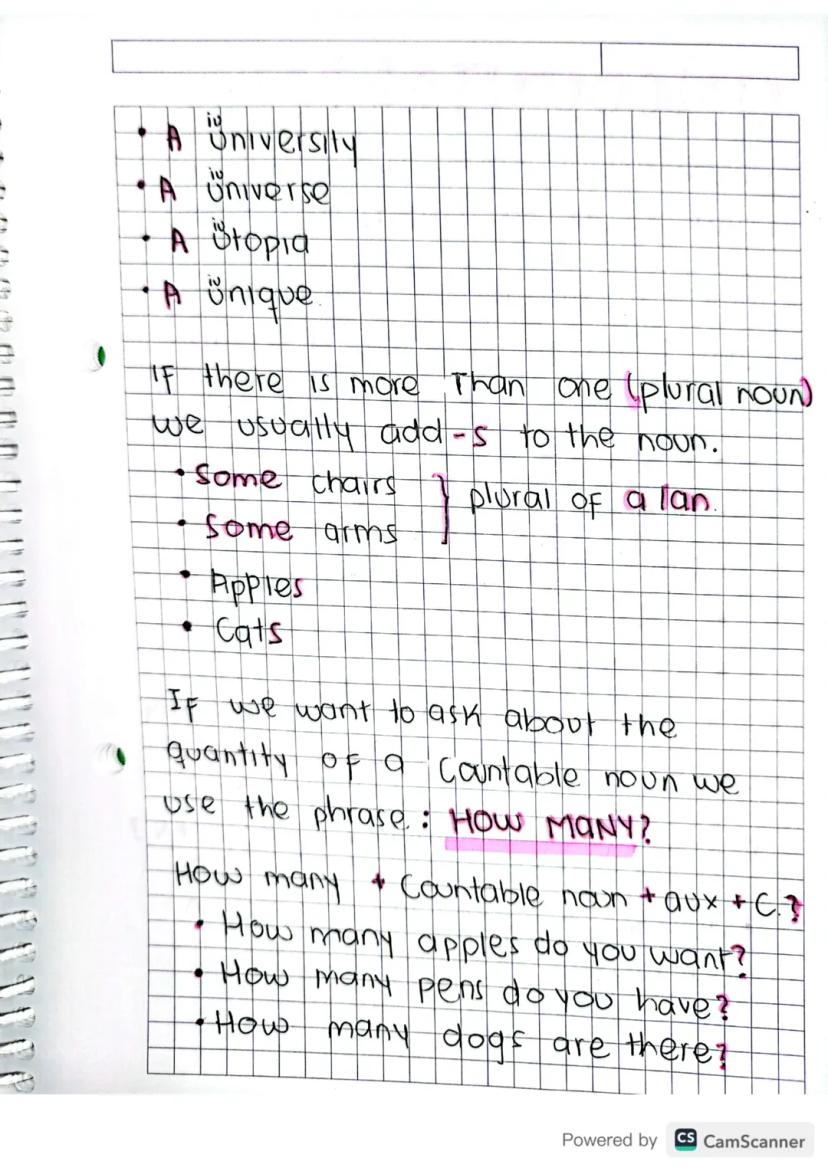 • A University
iu
• A Universe
iu
• A Utopia
iu
• A Unique
iu
IF there is more Than one (plural noun)
we usually add -s to the noun.
• Some chairs } plural of a / an.
• Some arms
• Apples
• Cats
If we want to ask about the
quantity of a Countable noun we
use the phrase: HOW MANY?
How many + Countable noun + aux + C.?
• How many apples do you want?
• How many pens do you have?
• How many dogs are there?
Powered by CS CamScanner